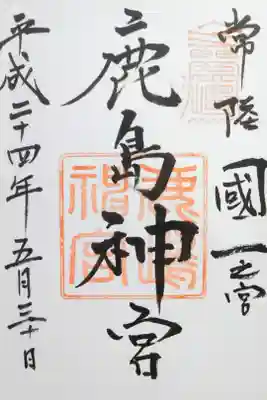 常陸國一之宮
鹿島神宮
鹿嶋
神宮
平成二十四年五月三十日